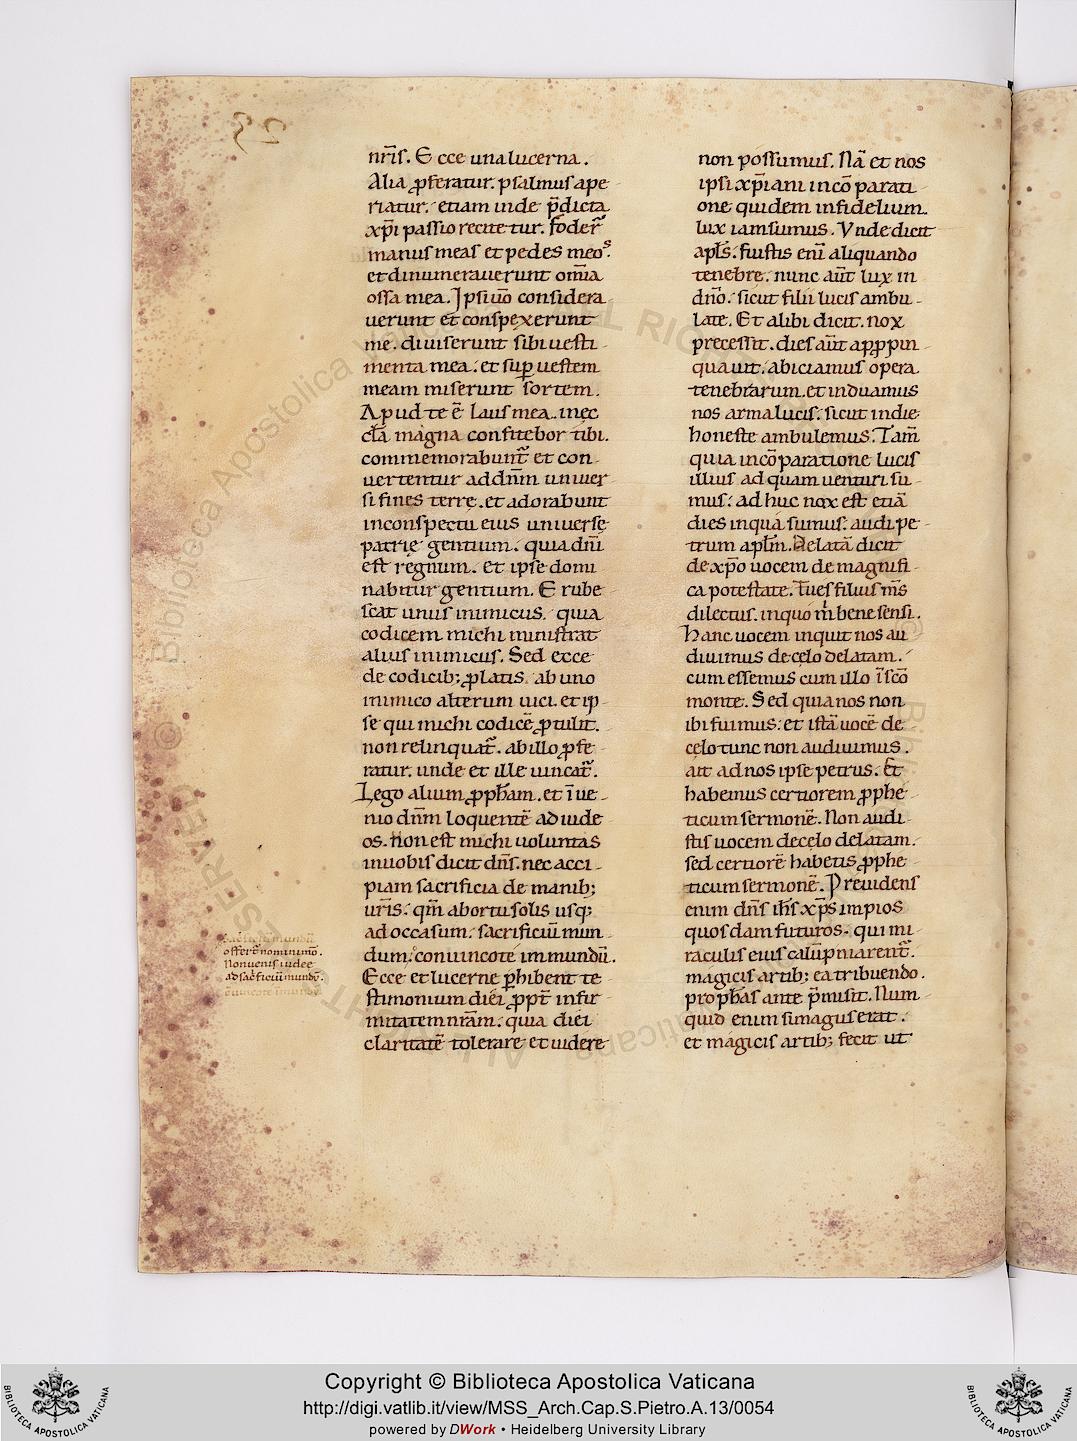 nr̄is. Ecce una lucerna.
Alia ꝓferatur. psalmus ape
riatur. etiam inde p̄dicta
xp̄i passio recitetur. foder̄
manus meas et pedes meos.
et dinumerauerunt om̄ia
ossa mea. Ipsi ūo considera
uerunt et conspexerunt
me. diuiserunt sibi uesti
menta mea. et sup̄ uestem
meam miserunt sortem.
Apud te ē laus mea. in ec
cl̄a magna confitebor tibi.
commemorabunt̄ et con
uertentur ad dn̄m uniuer
si fines terrę. et adorabunt
in conspectu eius uniuersę
patrię gentium. quia dn̄i
est regnum. et ipse domi
nabitur gentium. Erube
scat unus inimicus. quia
codicem michi ministrat
alius inimicus. Sed ecce
de codicib; ꝓlatis. ab uno
inimico alterum uici. et ip
se qui michi codicē ꝓtulit.
non relinquat̄. ab illo ꝓfe
ratur. unde et ille uincat̄.
Lego alium ꝓph̄am. et īue
nio dn̄m loquentē ad iude
os. Non est michi uoluntas
in uobis dicit dn̄s. nec acci
piam sacrificia de manib;
ur̄is. qm̄ ab ortu solis usq;
ad occasum. sacrificiū mun
dum.
Ecce et lucerne p̄hibent te
stimonium diei ꝓpt̄ infir
mitatem nr̄am. quia diei
claritatē tolerare et uidere
offert̄ nomini m̄o.
Non uenis iudee
ad sac̄ficiū mundū.
non possumus. Nā et nos
ipsi xp̄iani in cōparati
one quidem infidelium
lux iam sumus. Unde dicit
apl̄s. fuistis eni᷑ aliquando
tenebre. nunc aūt lux in
dn̄o. sicut filii lucis ambu
late. Et alibi dicit. nox
precessit. dies aūt apꝓpin
quauit. abiciamus opera
tenebrarum. et induamus
nos arma lucis. sicut in die
honeste ambulemus. Tam̄
quia in cōparatione lucis
illius ad quam uenturi su
mus. adhuc nox est etiā
dies in quā sumus. audi pe
trum apl̄m. Delatā dicit
de xp̄o uocem de magnifi
ca potestate. Tu es filius m̄s
dilectus. in quo m̄ bene sensi.
Hanc uocem inquit nos au
diuimus de cęlo delatam.
cum essemus cum illo ī scō
monte. Sed quia nos non
ibi fuimus. et istā uocē de
cęlo tunc non audiuimus.
ait ad nos ipse petrus. Et
habemus certiorem ꝓphe
ticum sermonē. Non audi
stis uocem de cęlo delatam.
sed certiorē habetis ꝓphe
ticum sermonē. Preuidens
enim dn̄s ih̄s xp̄s impios
quosdam futuros. qui mi
raculis eius calūpniarent̄.
magicis artib; ea tribuendo.
proph̄as ante p̄misit. Num
quid enim si magus erat.
et magicis artib; fecit ut
Copyright © Biblioteca Apostolica Vaticana
http://digi.vatlib.it/view/MSS_Arch.Cap.S.Pietro.A.13/0054
powered by DWork • Heidelberg University Library
BIBLIOTECA APOSTOLICA VATICANA
BIBLIOTECA APOSTOLICA VATICANA